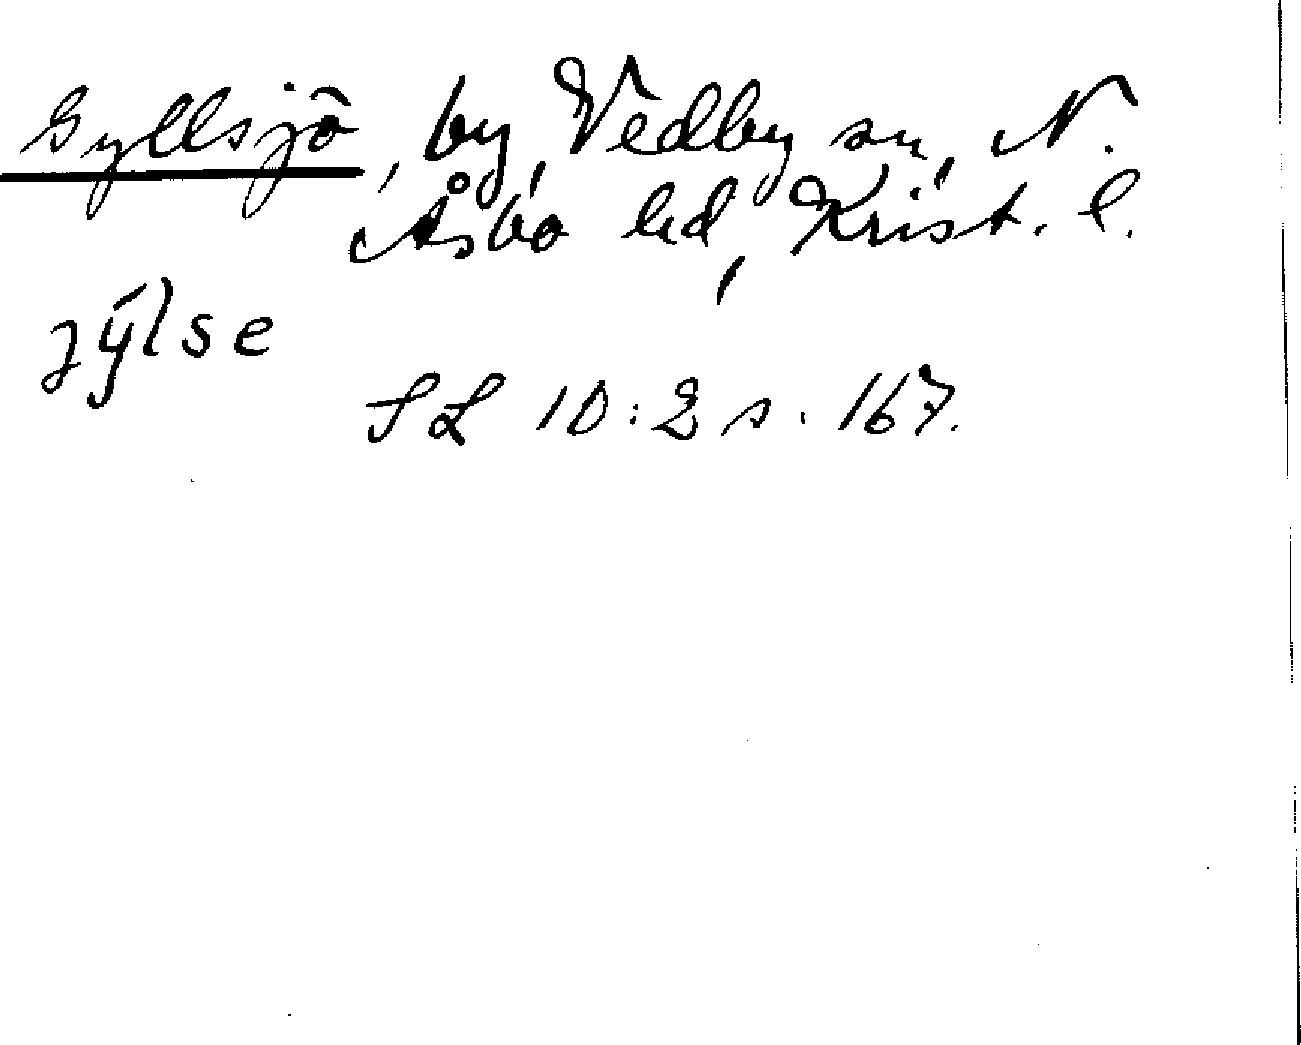 Gyllsjö, by, Vedby sn, N.
Åsbo hd, Krist. l.
jýlse
SL 10:2 s. 167.